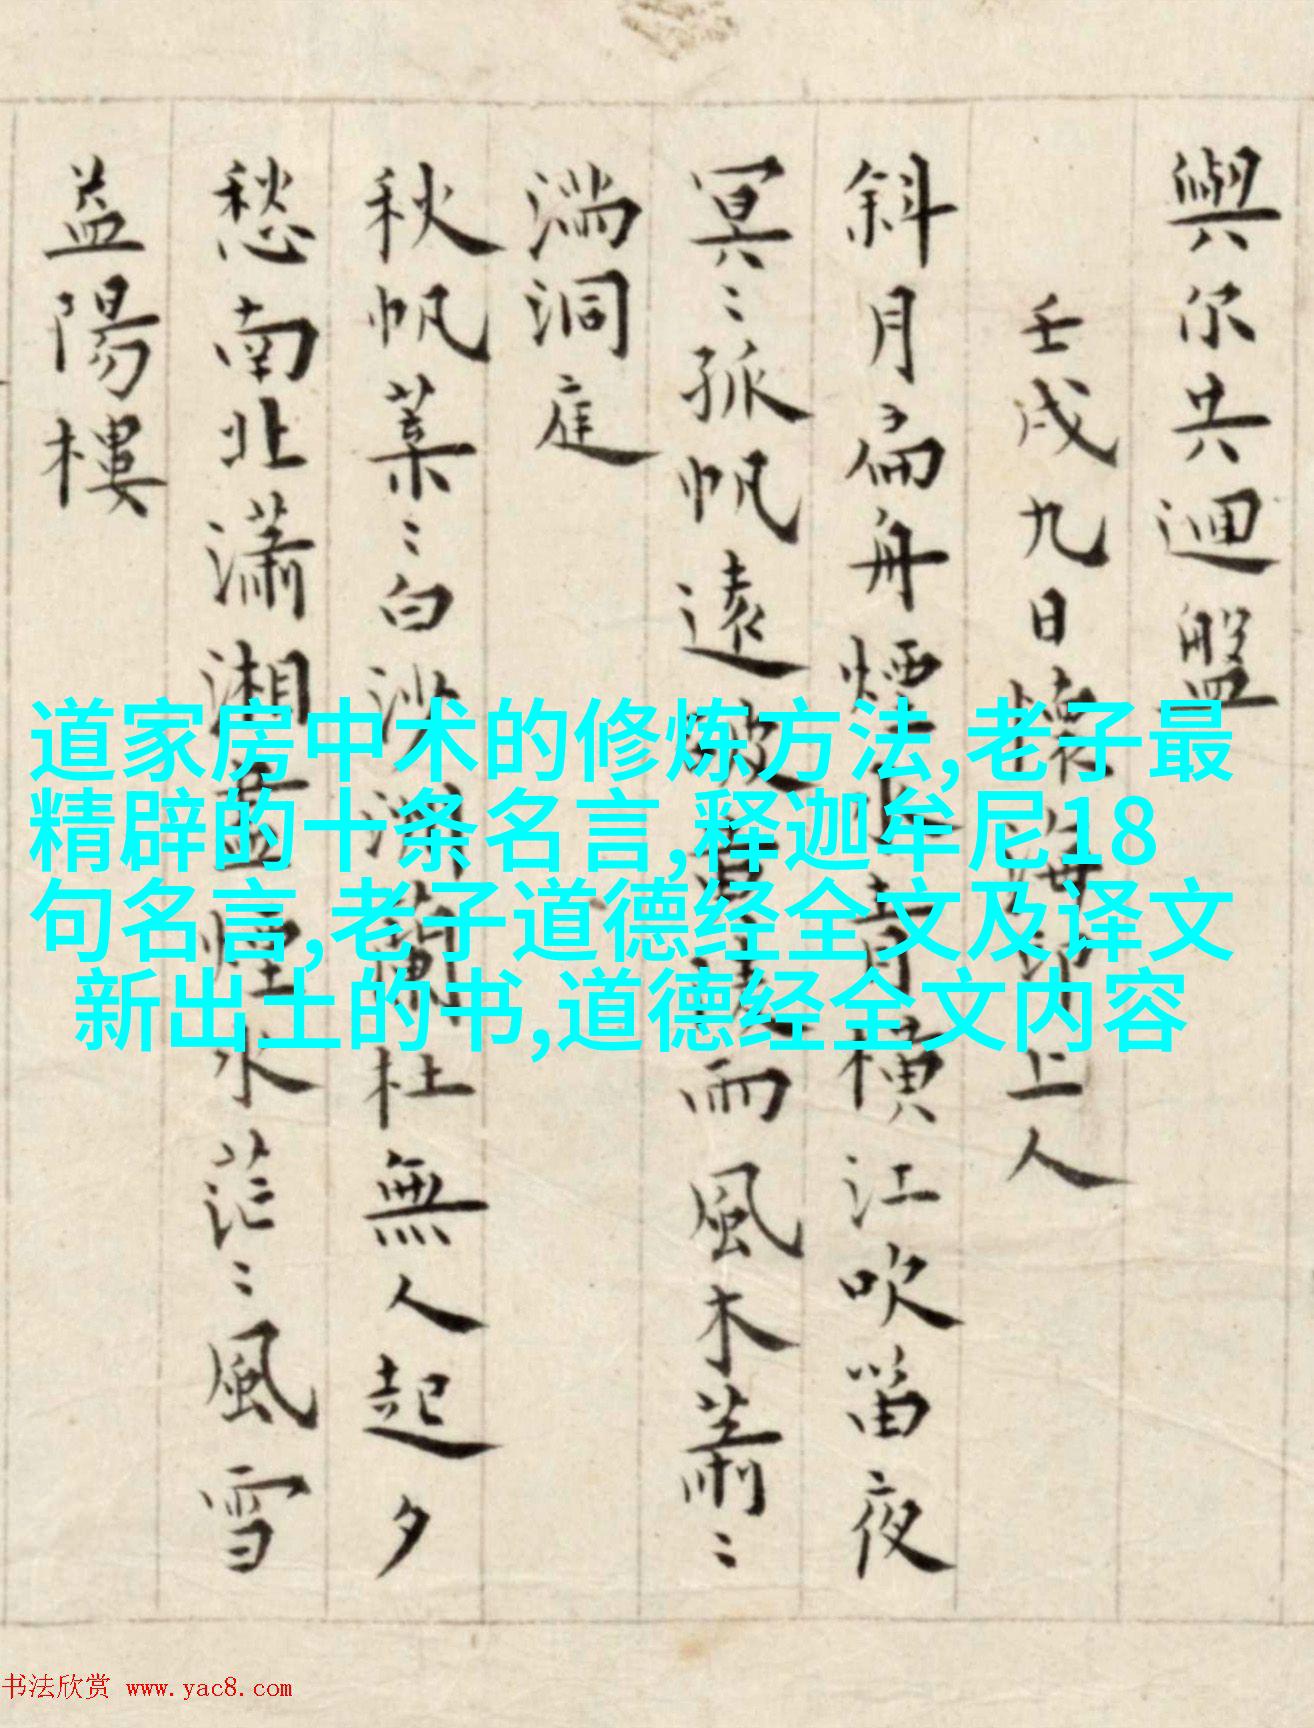 與尔共迴盤
壬戌九日懷海印上人
斜月扁舟煙月橫江吹笛夜
冥〻孤帆遠破而風木蕭〻
湍洞庭
秋帆葉〻白沙蘭杜無人起夕
愁南北瀟湘煙水茫〻風雪
益陽樓
道家房中术的修炼方法,老子最
精辟的十条名言,释迦牟尼18
句名言,老子道德经全文及译文
新出土的书,道德经全文内容
书法欣赏 www.yac8.com